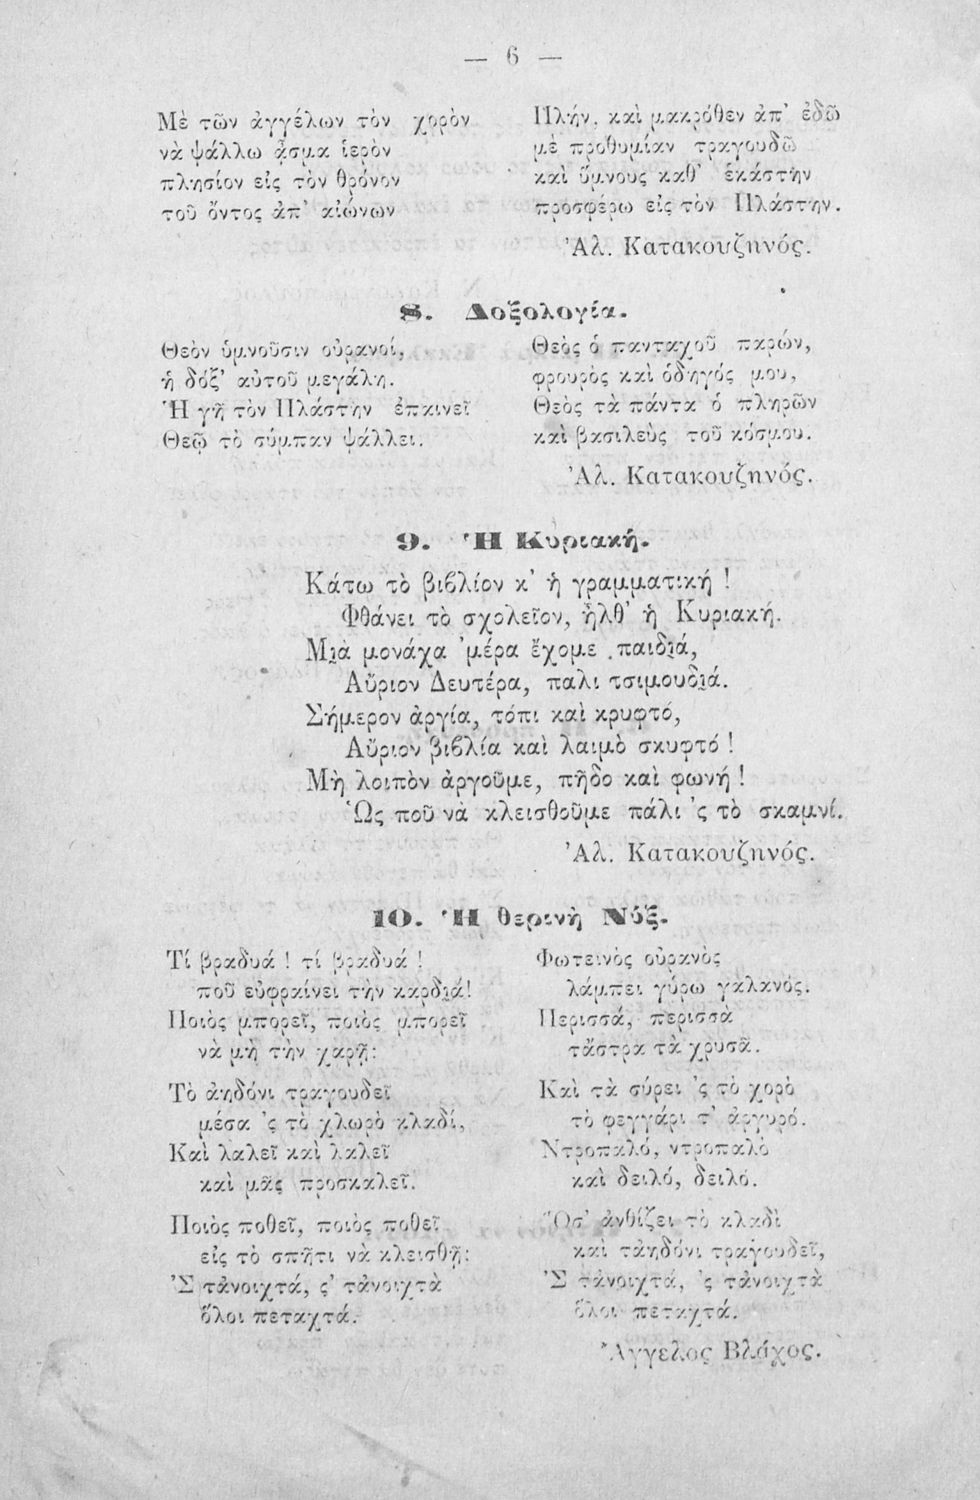 — 6 —
Μὲ τῶν ἀγγέλων τὸν χορὸν
νὰ ψάλλω ᾆσμα ἱερὸν
πλησίον εἰς τὸν θρόνον
τοῦ ὄντος ἀπ' αἰώνων
Πλήν, καὶ μακρόθεν ἀπ' ἐδῶ
μὲ προθυμίαν τραγουδῶ
καὶ ὕμνους καθ' ἑκάστην
προσφέρω εἰς τὸν Πλάστην.
Ἀλ. Κατακουζηνός.
8. Δοξολογία.
Θεὸν ὑμνοῦσιν οὐρανοί,
ἡ δόξ' αὐτοῦ μεγάλη.
Ἡ γῆ τὸν Πλάστην ἐπαινεῖ
Θεῷ τὸ σύμπαν ψάλλει.
Θεὸς ὁ πανταχοῦ παρών,
φρουρὸς καὶ ὁδηγός μου,
Θεὸς τὰ πάντα ὁ πληρῶν
καὶ βασιλεὺς τοῦ κόσμου.
Ἀλ. Κατακουζηνός.
9. Ἡ Κυριακή.
Κάτω τὸ βιβλίον κ' ἡ γραμματική !
Φθάνει τὸ σχολεῖον, ἦλθ' ἡ Κυριακή.
Μιὰ μονάχα 'μέρα ἔχομε παιδιά,
Αὔριον Δευτέρα, παλι τσιμουδιά.
Σήμερον ἀργία, τόπι καὶ κρυφτό,
Αὔριον βιβλία καὶ λαιμὸ σκυφτό !
Μὴ λοιπὸν ἀργοῦμε, πῆδο καὶ φωνή !
Ὡς ποῦ νὰ κλεισθοῦμε πάλι 'ς τὸ σκαμνί.
Ἀλ. Κατακουζηνός.
10. Ἡ θερινὴ Νύξ.
Τί βραδυά ! τί βραδυά !
ποῦ εὐφραίνει τὴν καρδιά!
Ποιὸς μπορεῖ, ποιὸς μπορεῖ
νὰ μὴ τὴν χαρῇ:
Τὸ ἀηδόνι τραγουδεῖ
μέσα 'ς τὸ χλωρὸ κλαδί,
Καὶ λαλεῖ καὶ λαλεῖ
καὶ μᾶς προσκαλεῖ.
Ποιὸς ποθεῖ, ποιὸς ποθεῖ
εἰς τὸ σπῆτι νὰ κλεισθῇ:
Ἐ τἀνοιχτά, ς' τἀνοιχτὰ
ὅλοι πεταχτά.
Φωτεινὸς οὐρανὸς
λάμπει γύρω γαλανός.
Περισσά, περισσὰ
τἄστρα τὰ χρυσᾶ.
Καὶ τὰ σύρει 'ς τὸ χορὸ
τὸ φεγγάρι τ' ἀργυρό.
Ντροπαλό, ντροπαλὸ
καὶ δειλό, δειλό.
Ὅσ' ἀνθίζει τὸ κλαδὶ
καὶ τἀηδόνι τραγουδεῖ,
Ἐ τἀνοιχτά, 'ς τἀνοιχτὰ
ὅλοι πεταχτά.
Ἄγγελος Βλάχος.